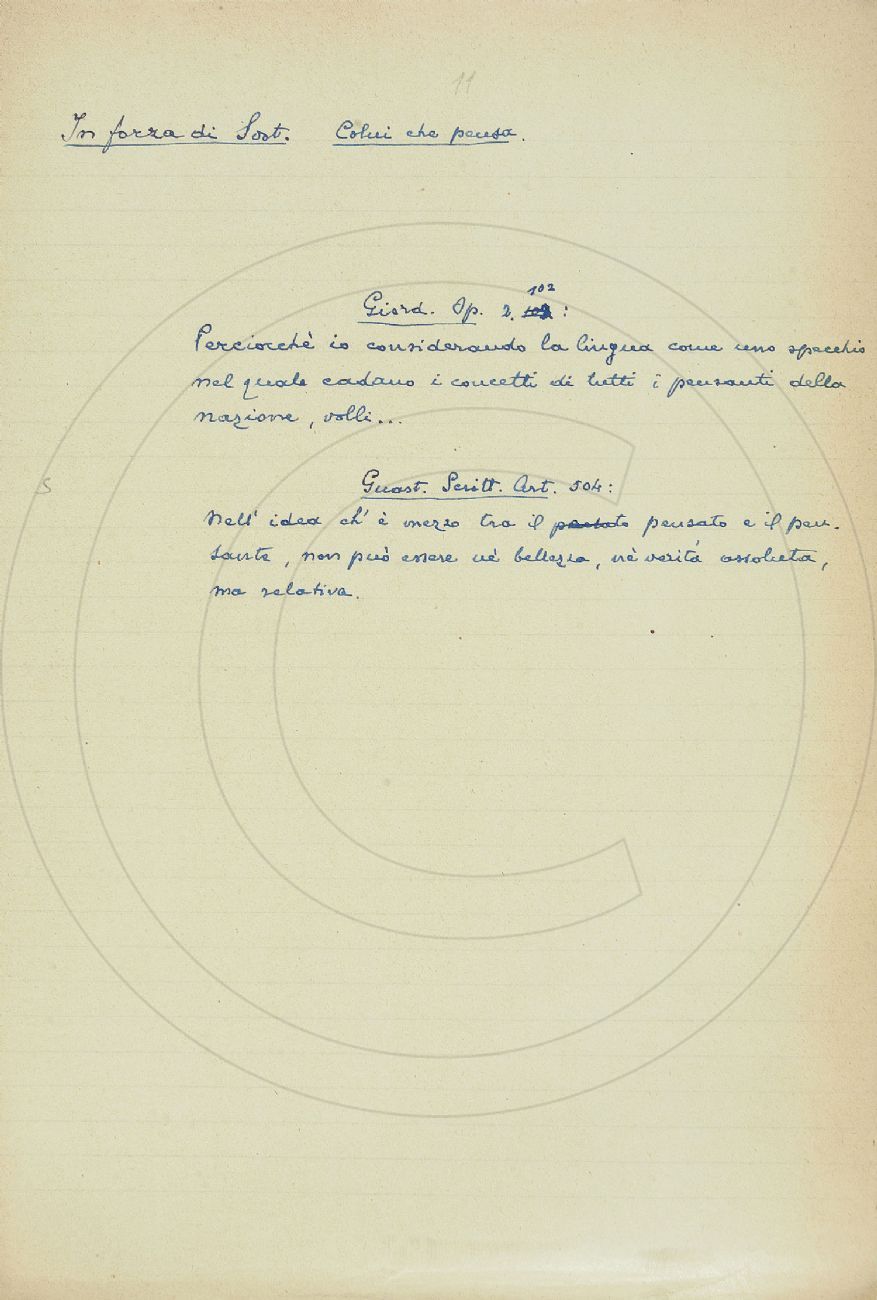 11
In forza di Sost. Colui che pensa.
102
Giord. Op. 2. 102 :
Perciocchè io considerando la lingua come uno specchio
nel quale cadano i concetti di tutti i pensanti della
nazione, volli...
S
Guast. Scritt. Art. 504:
Nell' idea ch' è mezzo tra il pensato pensato e il pen-
sante, non può essere nè bellezza, nè verità assoluta,
ma relativa.